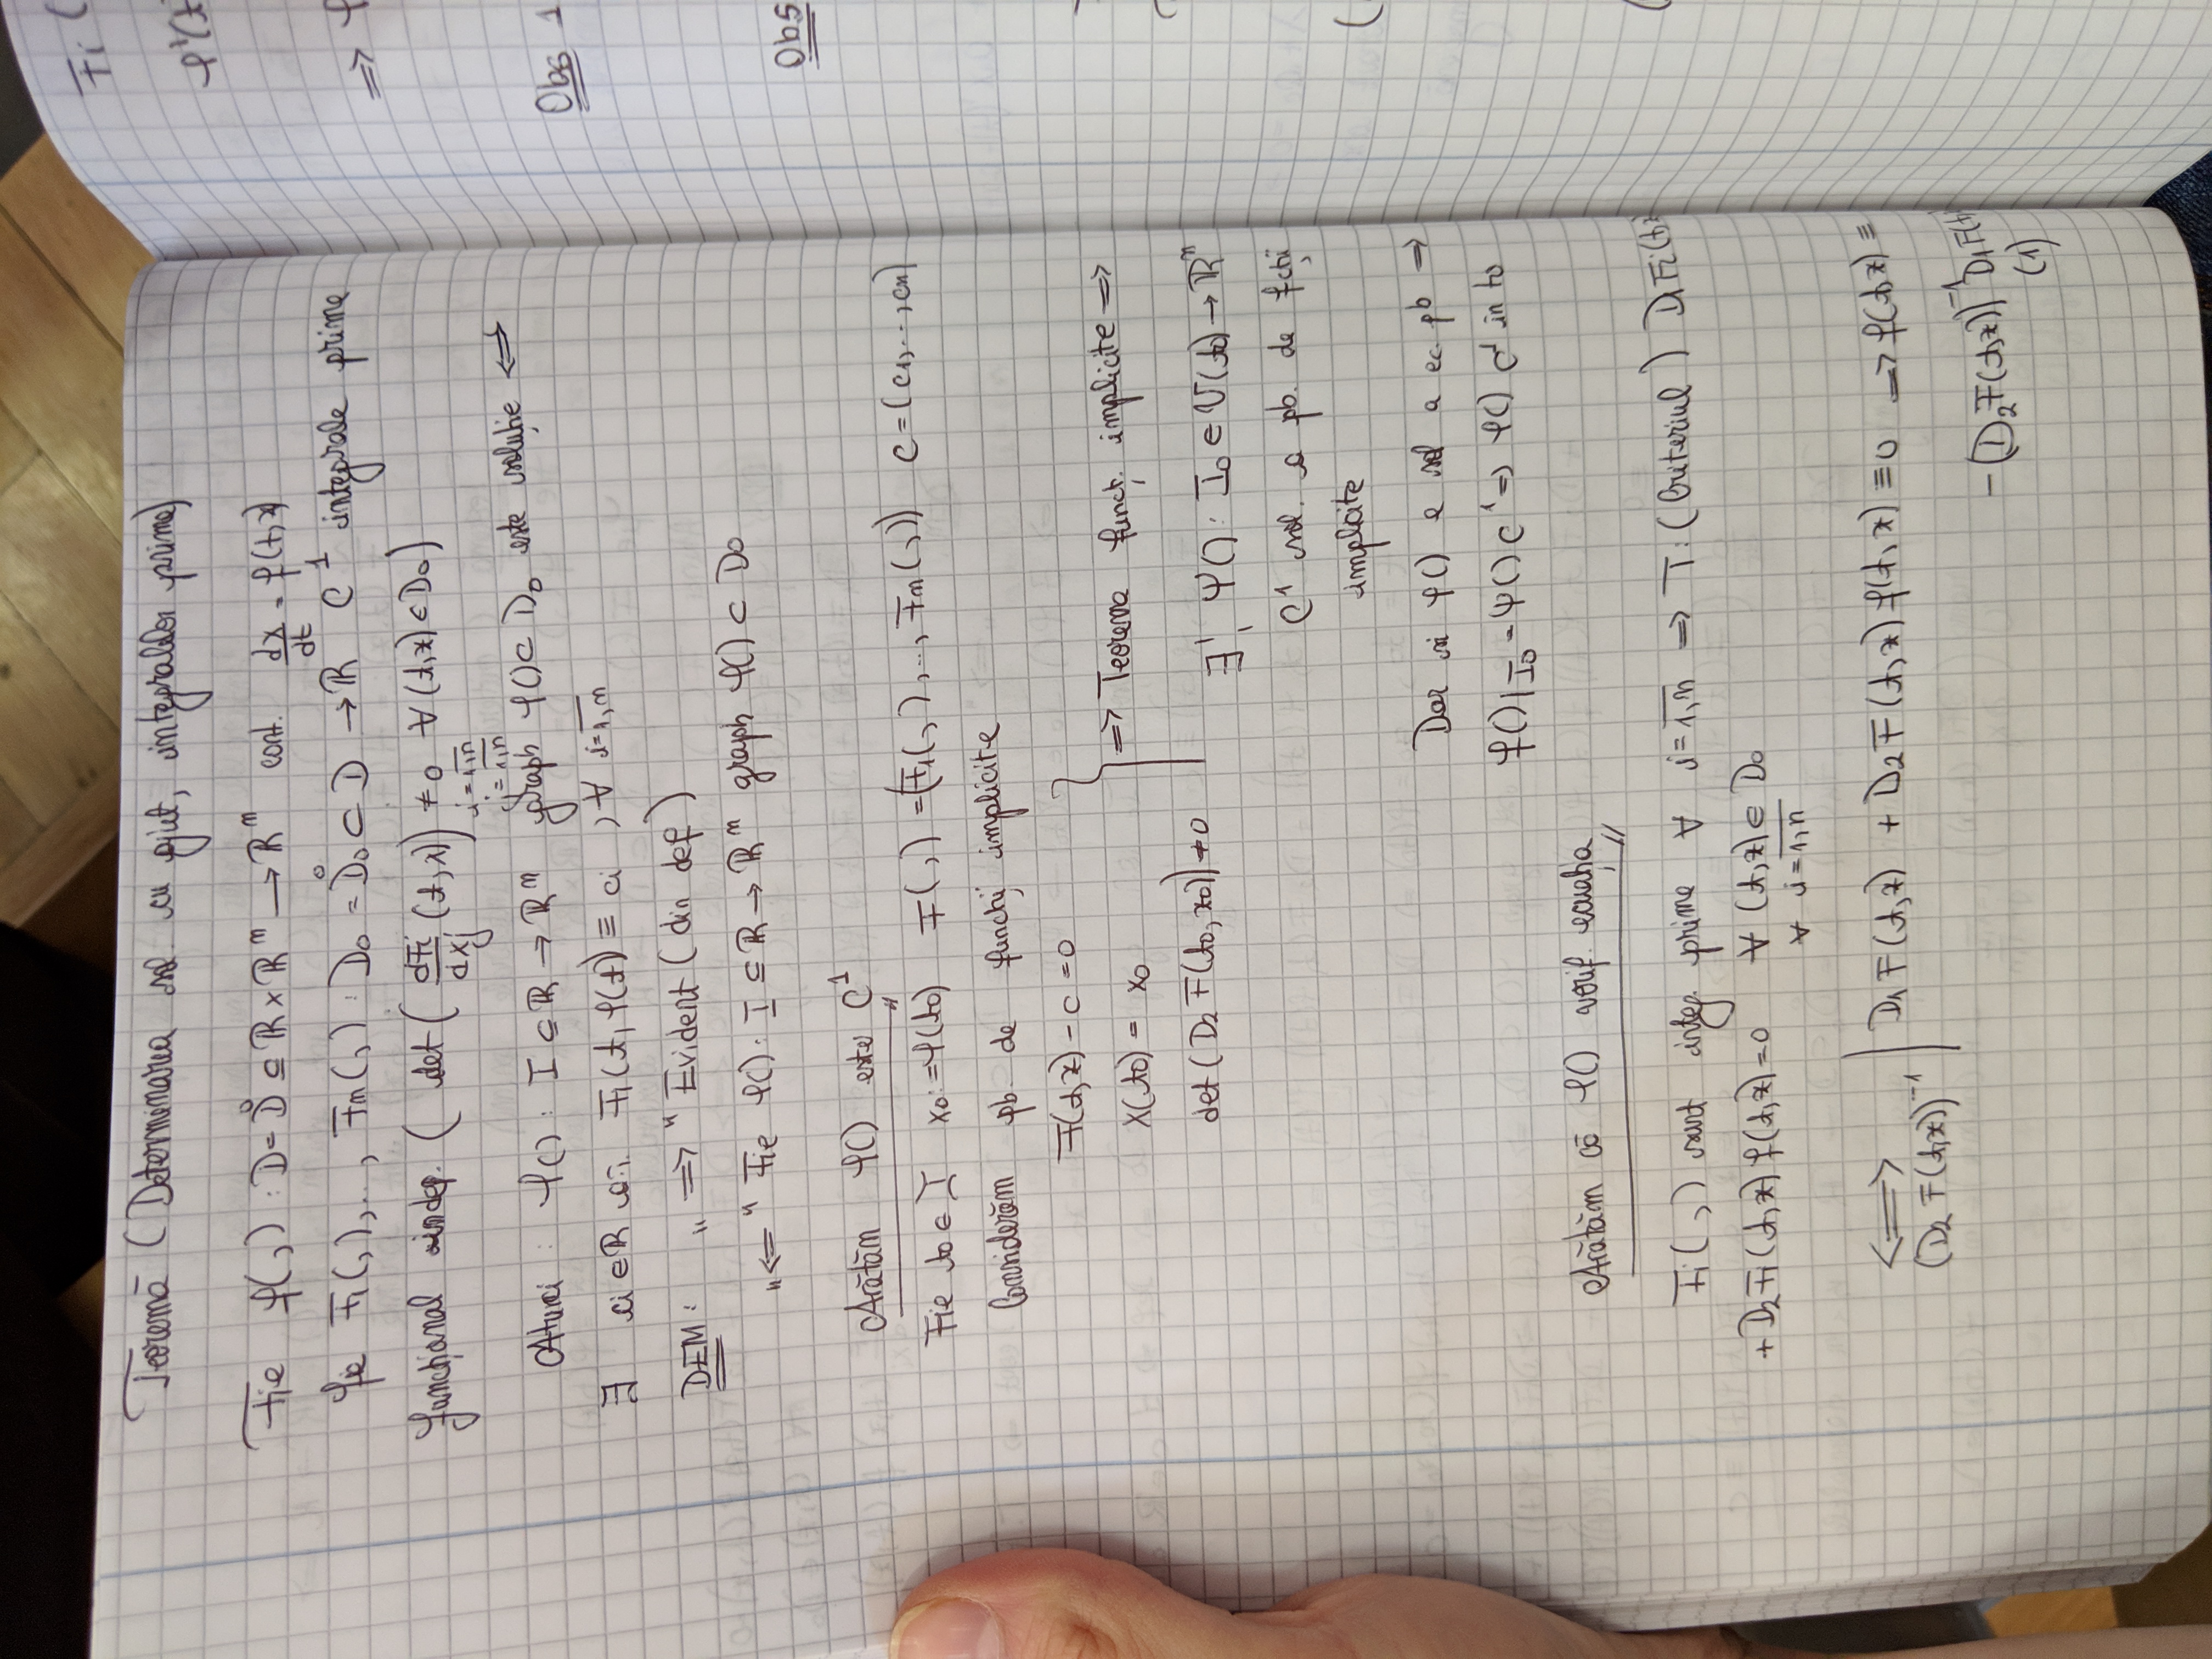 Teoremă (Determinarea sol. cu ajut, integralelor prime)
Fie f(,) : D = D̊ ⊆ ℝ × ℝⁿ → ℝⁿ cont. dx/dt = f(t,x)
fie F₁(,),..., Fn(,) : D₀ = D̊₀ ⊂ D → ℝ C¹ integrale prime
funcțional indep. ( det( dFi/dxj (t,x)) i=1,n j=1,n ≠ 0 ∀ (t,x) ∈ D₀)
Atunci : φ() : I ⊆ ℝ → ℝⁿ graph φ() ⊂ D₀ este soluție ⟺
∃ ci ∈ ℝ a.î. Fi(t, φ(t)) ≡ ci , ∀ i=1,n
DEM: „ ⟹ " Evident ( din def )
„ ⟸ " Fie φ() : I ⊆ ℝ → ℝⁿ graph φ() ⊂ D₀
Arătăm φ() este C¹
Fie t₀ ∈ I x₀ := φ(t₀) F(,) = (F₁(,),..., Fn(,)) C = (c₁,...,cn)
Considerăm pb. de funcții implicite
F(t,x) - c = 0
x(t₀) = x₀
⟹ Teorema funcț. implicite ⟹
det (D₂ F(t₀, x₀)) ≠ 0
∃! ψ() : I₀ ∈ V(t₀) → ℝⁿ
C¹ sol. a pb. de fcții
implicite
Dar și φ() e sol a ec. pb ⟹
φ()|I₀ = ψ() C¹ ⟹ φ() C¹ in t₀
Arătăm că φ() verif. ecuația
Fi(,) sunt integ. prime ∀ i=1,n ⟹ T: (Criteriul) D₁Fi(t,x)
+ D₂Fi(t,x) f(t,x) = 0 ∀ (t,x) ∈ D₀
∀ i=1,n
⟺ | D₁F(t,x) + D₂F(t,x) f(t,x) ≡ 0 ⟹ f(t,x) ≡
(D₂ F(t,x))⁻¹
-(D₂F(t,x))⁻¹ D₁F(t,
(1)
Fi (
φ'(t
⟹
Obs 1
Obs